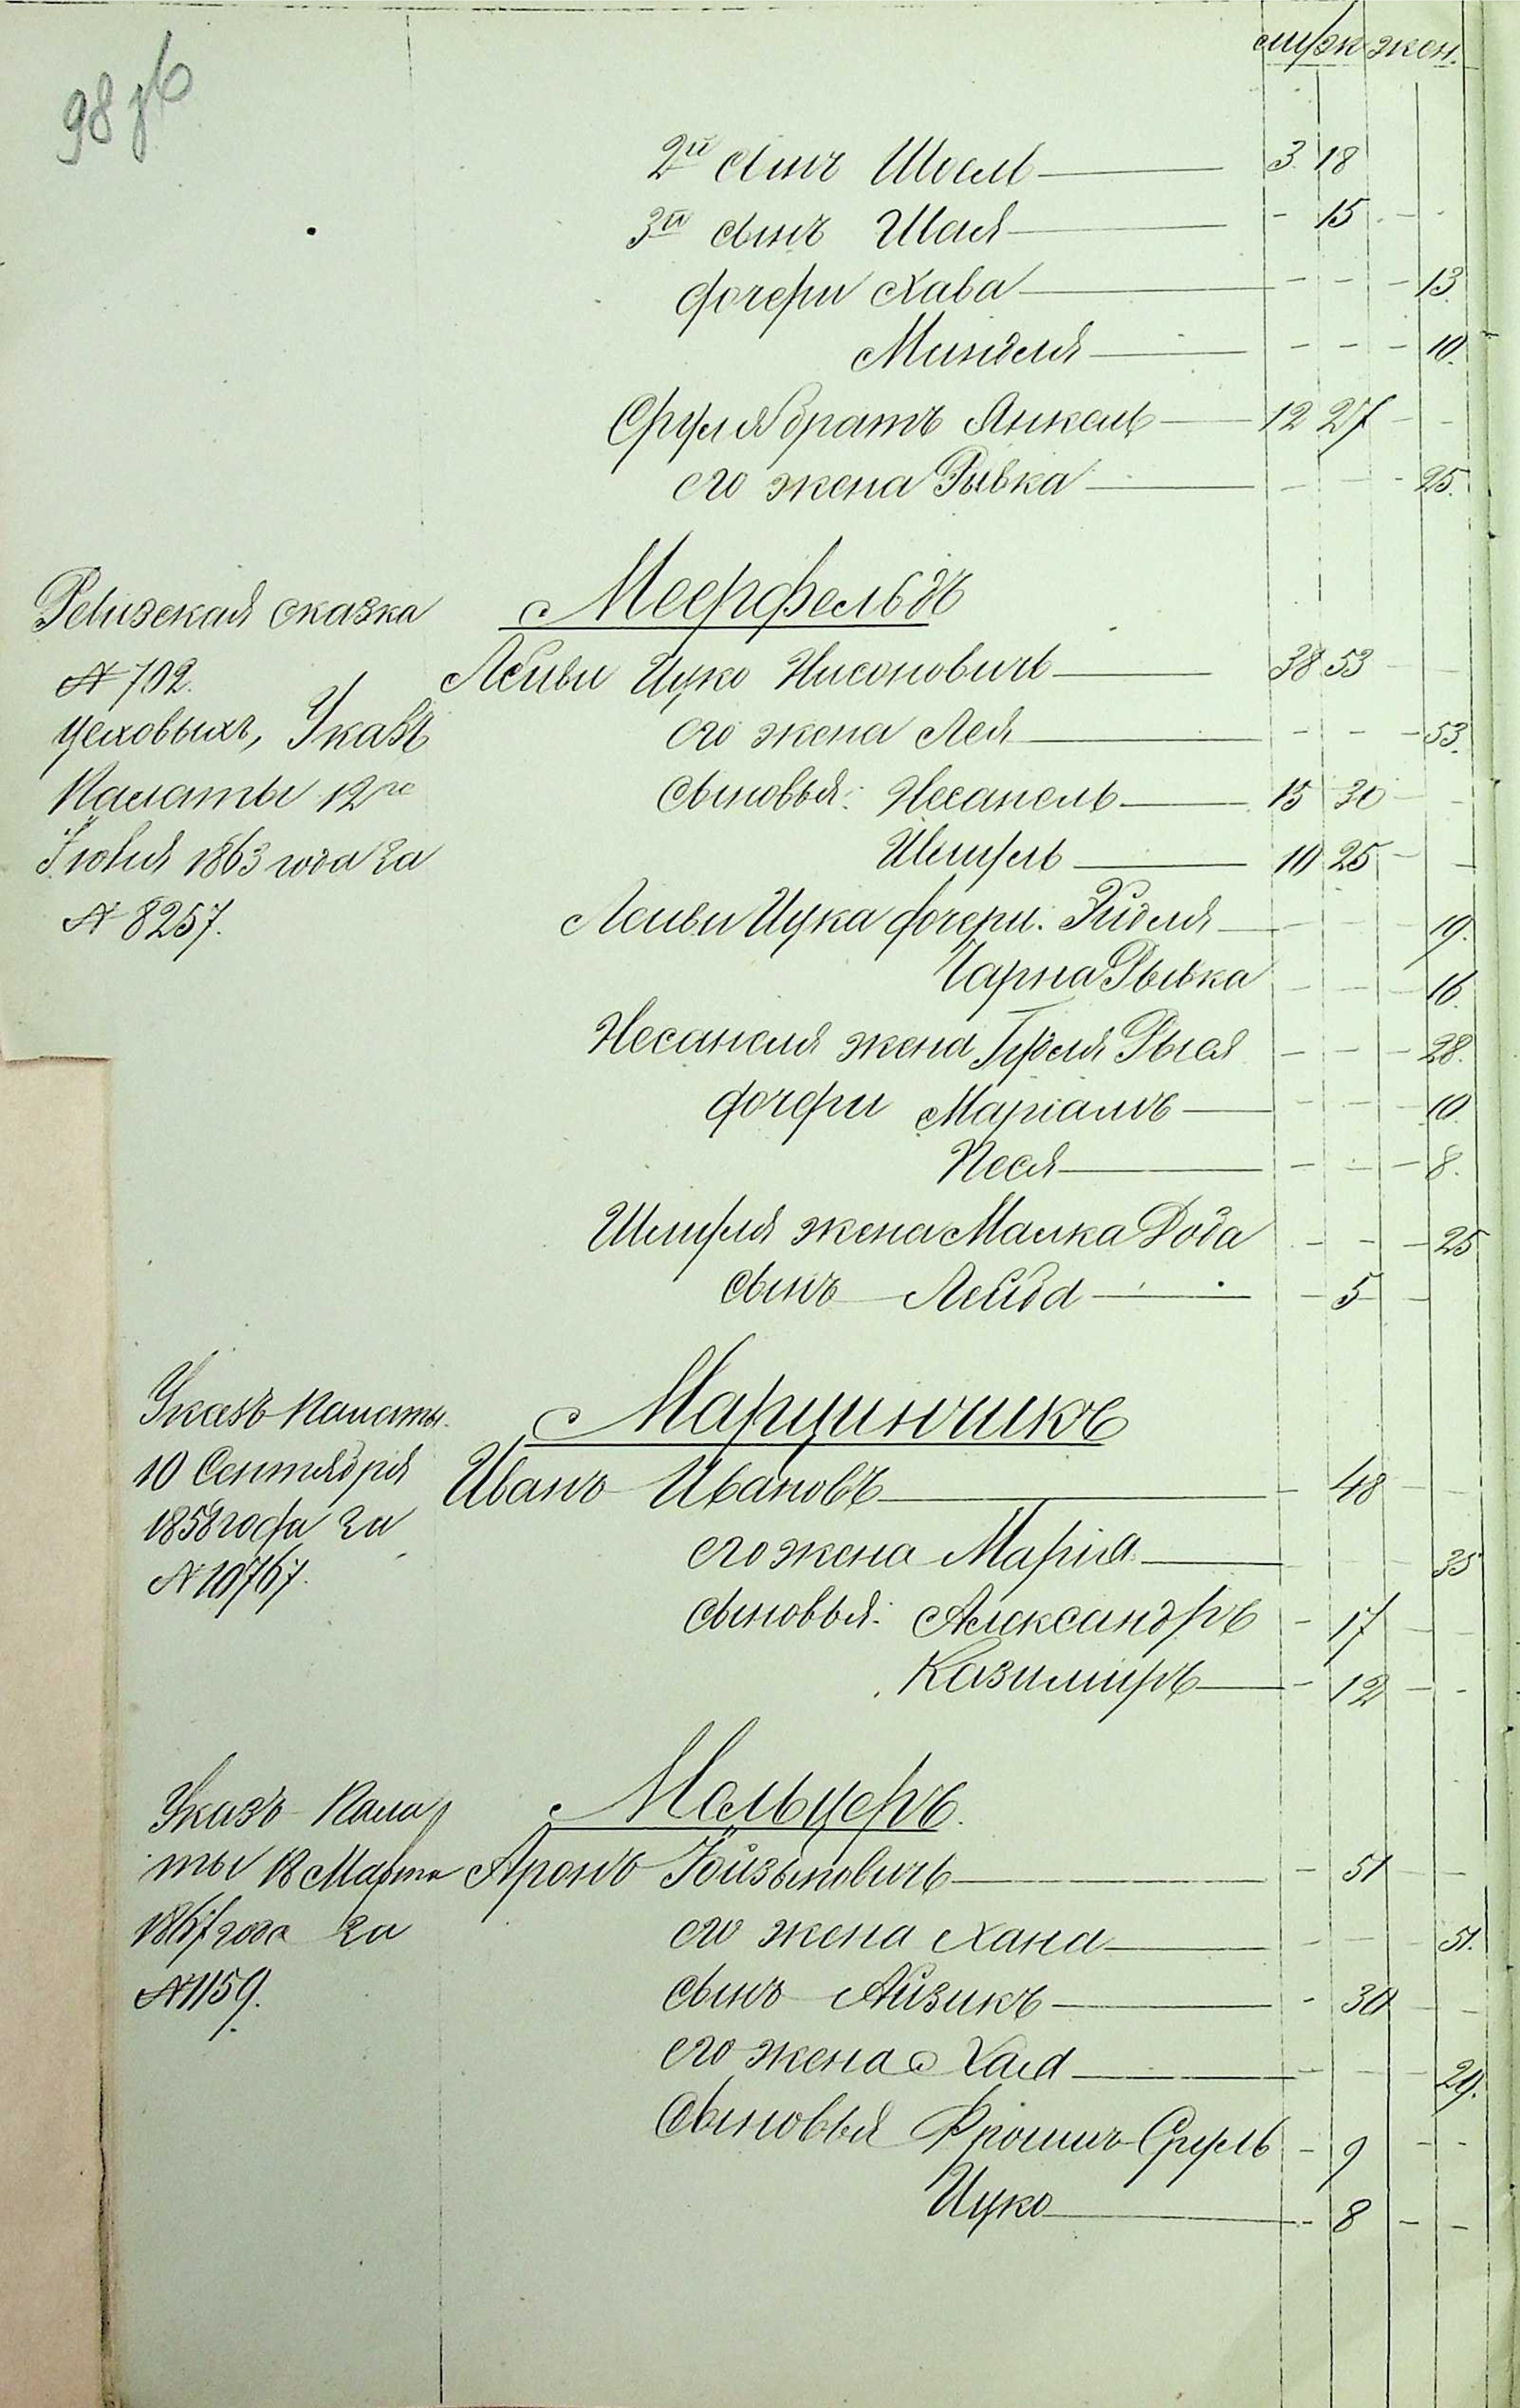 98 зв
муж жен.
2й сынъ Шоель 3 18
3й сынъ Шая - 15 - -
дочери Хава - - - 13.
Минделя - - - 10.
Сруля братъ Янкель 12 27 - -
его жена Рывка - - - 25.
Меерфельдъ
Ревизская сказка
№ 702.
цеховыхъ, Указъ
Палаты 12го
Іюня 1863 года за
№ 8257.
Лейви Ицко Нисоновичъ 38 53 - -
его жена Лея - - - 53.
сыновья: Несанель 15 30 - -
Шмуль 10 25 - -
Лейви Ицка дочери: Эйделя - - - 19.
Чарна Рывка - - - 16.
Несанеля жена Гуделя Рыся - - - 28.
дочери Маріамъ - - - 10.
Песя - - - 8.
Шмуля жена Малка Дода - - - 25
сынъ Лейба - 5 -
Марцинчикъ
Указъ Палаты
10 Сентября
1858 года за
№ 10767.
Иванъ Ивановъ - 48 - -
его жена Марія - - 35
сыновья: Александръ - 17 - -
Казимиръ - 12 - -
Мельцеръ.
Указъ Пала
ты 18 Марта
1867 года за
№ 1159.
Аронъ Йойзыповичъ - 51 - -
его жена Хана - - - 51.
сынъ Айзикъ - 30 - -
его жена Хая - - - 29.
Сыновья Фроимъ-Сруль - 9 - -
Ицко - 8 - -